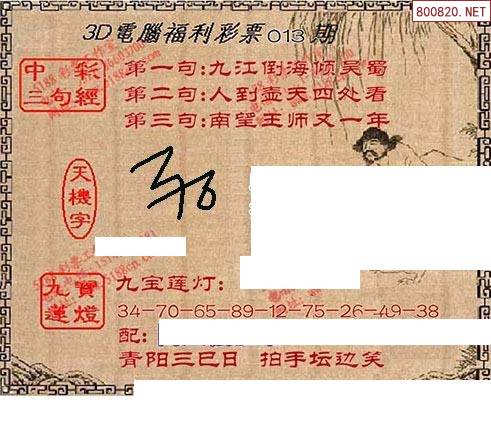 800820.NET
3D電腦福利彩票013期
中彩三句經
第一句:九江倒海倾吴蜀
第二句:人到壶天四处看
第三句:南望王师又一年
天機字
九寶蓮燈
九宝莲灯:
34-70-65-89-12-75-26-49-38
配:
青阳三巳日 拍手坛边笑